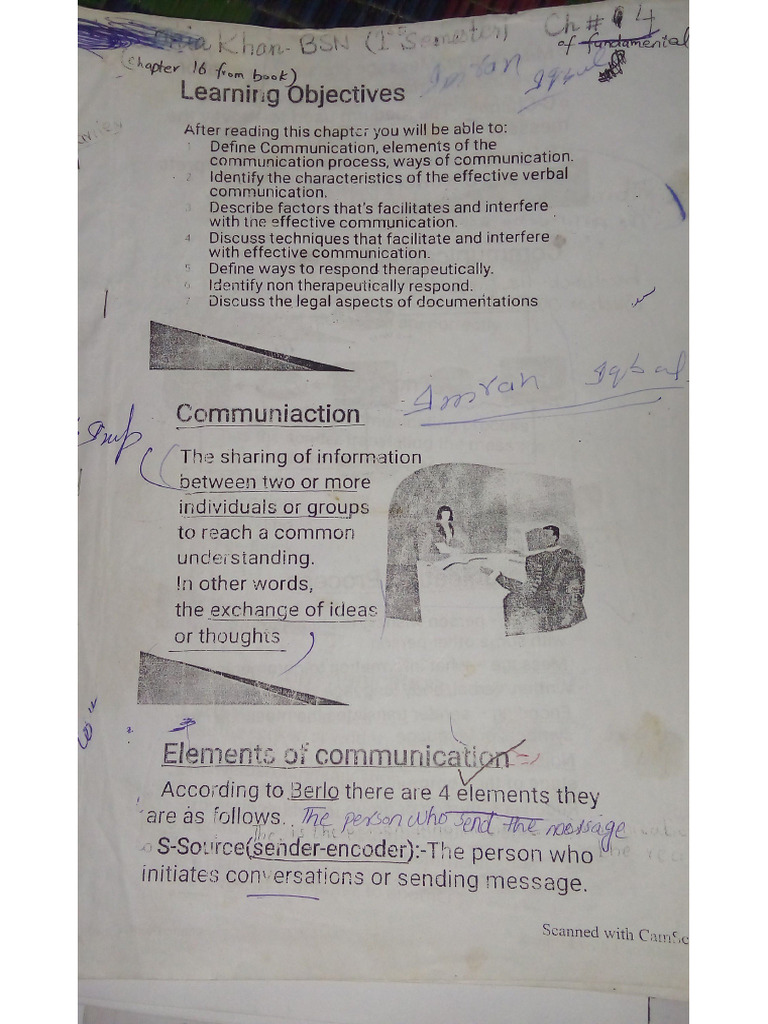 Khan - BSN (1st Semester) Ch # 4
of fundamental
(chapter 16 from book)
Imran Iqbal
Learning Objectives
After reading this chapter you will be able to:
1 Define Communication, elements of the
communication process, ways of communication.
2 Identify the characteristics of the effective verbal
communication.
3 Describe factors that's facilitates and interfere
with the effective communication.
4 Discuss techniques that facilitate and interfere
with effective communication.
5 Define ways to respond therapeutically.
6 Identify non therapeutically respond.
7 Discuss the legal aspects of documentations
Imran Iqbal
Communiaction
The sharing of information
between two or more
individuals or groups
to reach a common
understanding.
In other words,
the exchange of ideas
or thoughts
Elements of communication
According to Berlo there are 4 elements they
are as follows. The person who send the message
S-Source(sender-encoder):-The person who
initiates conversations or sending message.
Scanned with CamSc